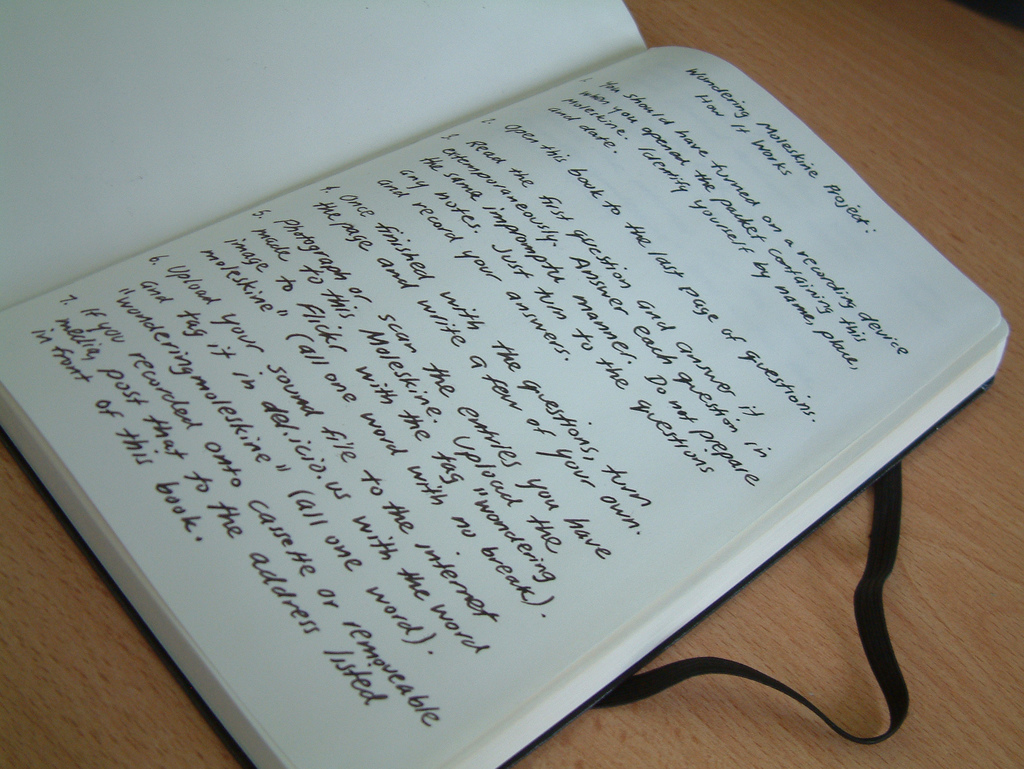 Wandering Moleskine Project:
How It Works
1. You should have turned on a recording device
when you opened the packet containing this
Moleskine. Identify yourself by name, place,
and date.
2. Open this book to the last page of questions.
3. Read the first question and answer it
extemporaneously. Answer each question in
the same impromptu manner. Do not prepare
any notes. Just turn to the questions
and record your answers.
4. Once finished with the questions, turn
the page and write a few of your own.
5. Photograph or scan the entries you have
made to this Moleskine. Upload the
image to Flickr with the tag "wandering
moleskine" (all one word with no break).
6. Upload your sound file to the internet
and tag it in del.icio.us with the word
"wonderingmoleskine" (all one word).
7. If you recorded onto cassette or removeable
media, post that to the address listed
in front of this book.